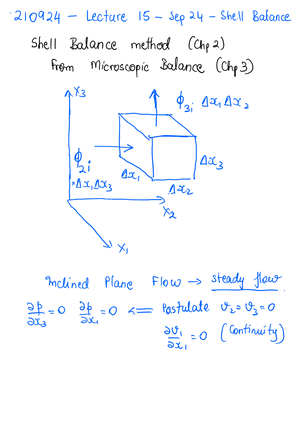 210924 – Lecture 15 – Sep 24 – Shell Balance
Shell Balance method (Chp 2)
From Microscopic Balance (Chp 3)
x₃
ϕ₃ᵢ Δx₁ Δx₂
ϕ₂ᵢ
*Δx₁Δx₃
Δx₁
Δx₃
Δx₂
x₂
x₁
Inclined Plane Flow → steady flow
∂p/∂x₃ = 0 ∂p/∂x₁ = 0 <= Postulate v₂ = v₃ = 0
∂v₁/∂x₁ = 0 (Continuity)